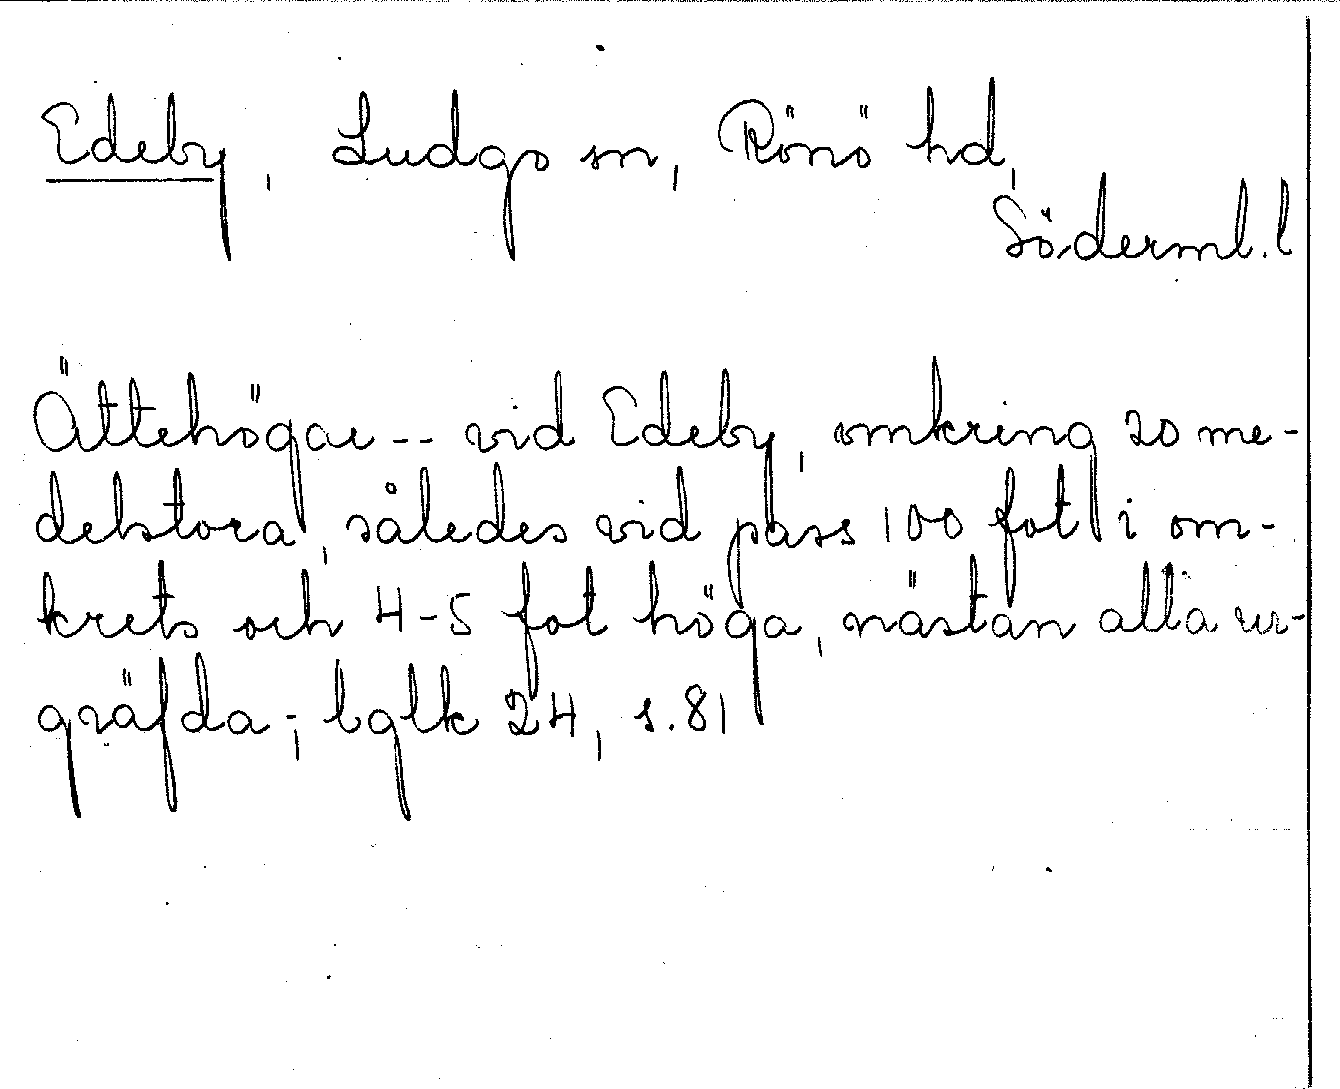 Edeby, Ludgo sn, Rönö hd,
Söderml. l
Ättehögar -- vid Edeby, omkring 20 me-
delstora, således vid pass 100 fot i om-
krets och 4-5 fot höga, nästan alla ur-
gräfda -; lglk 24, s. 81